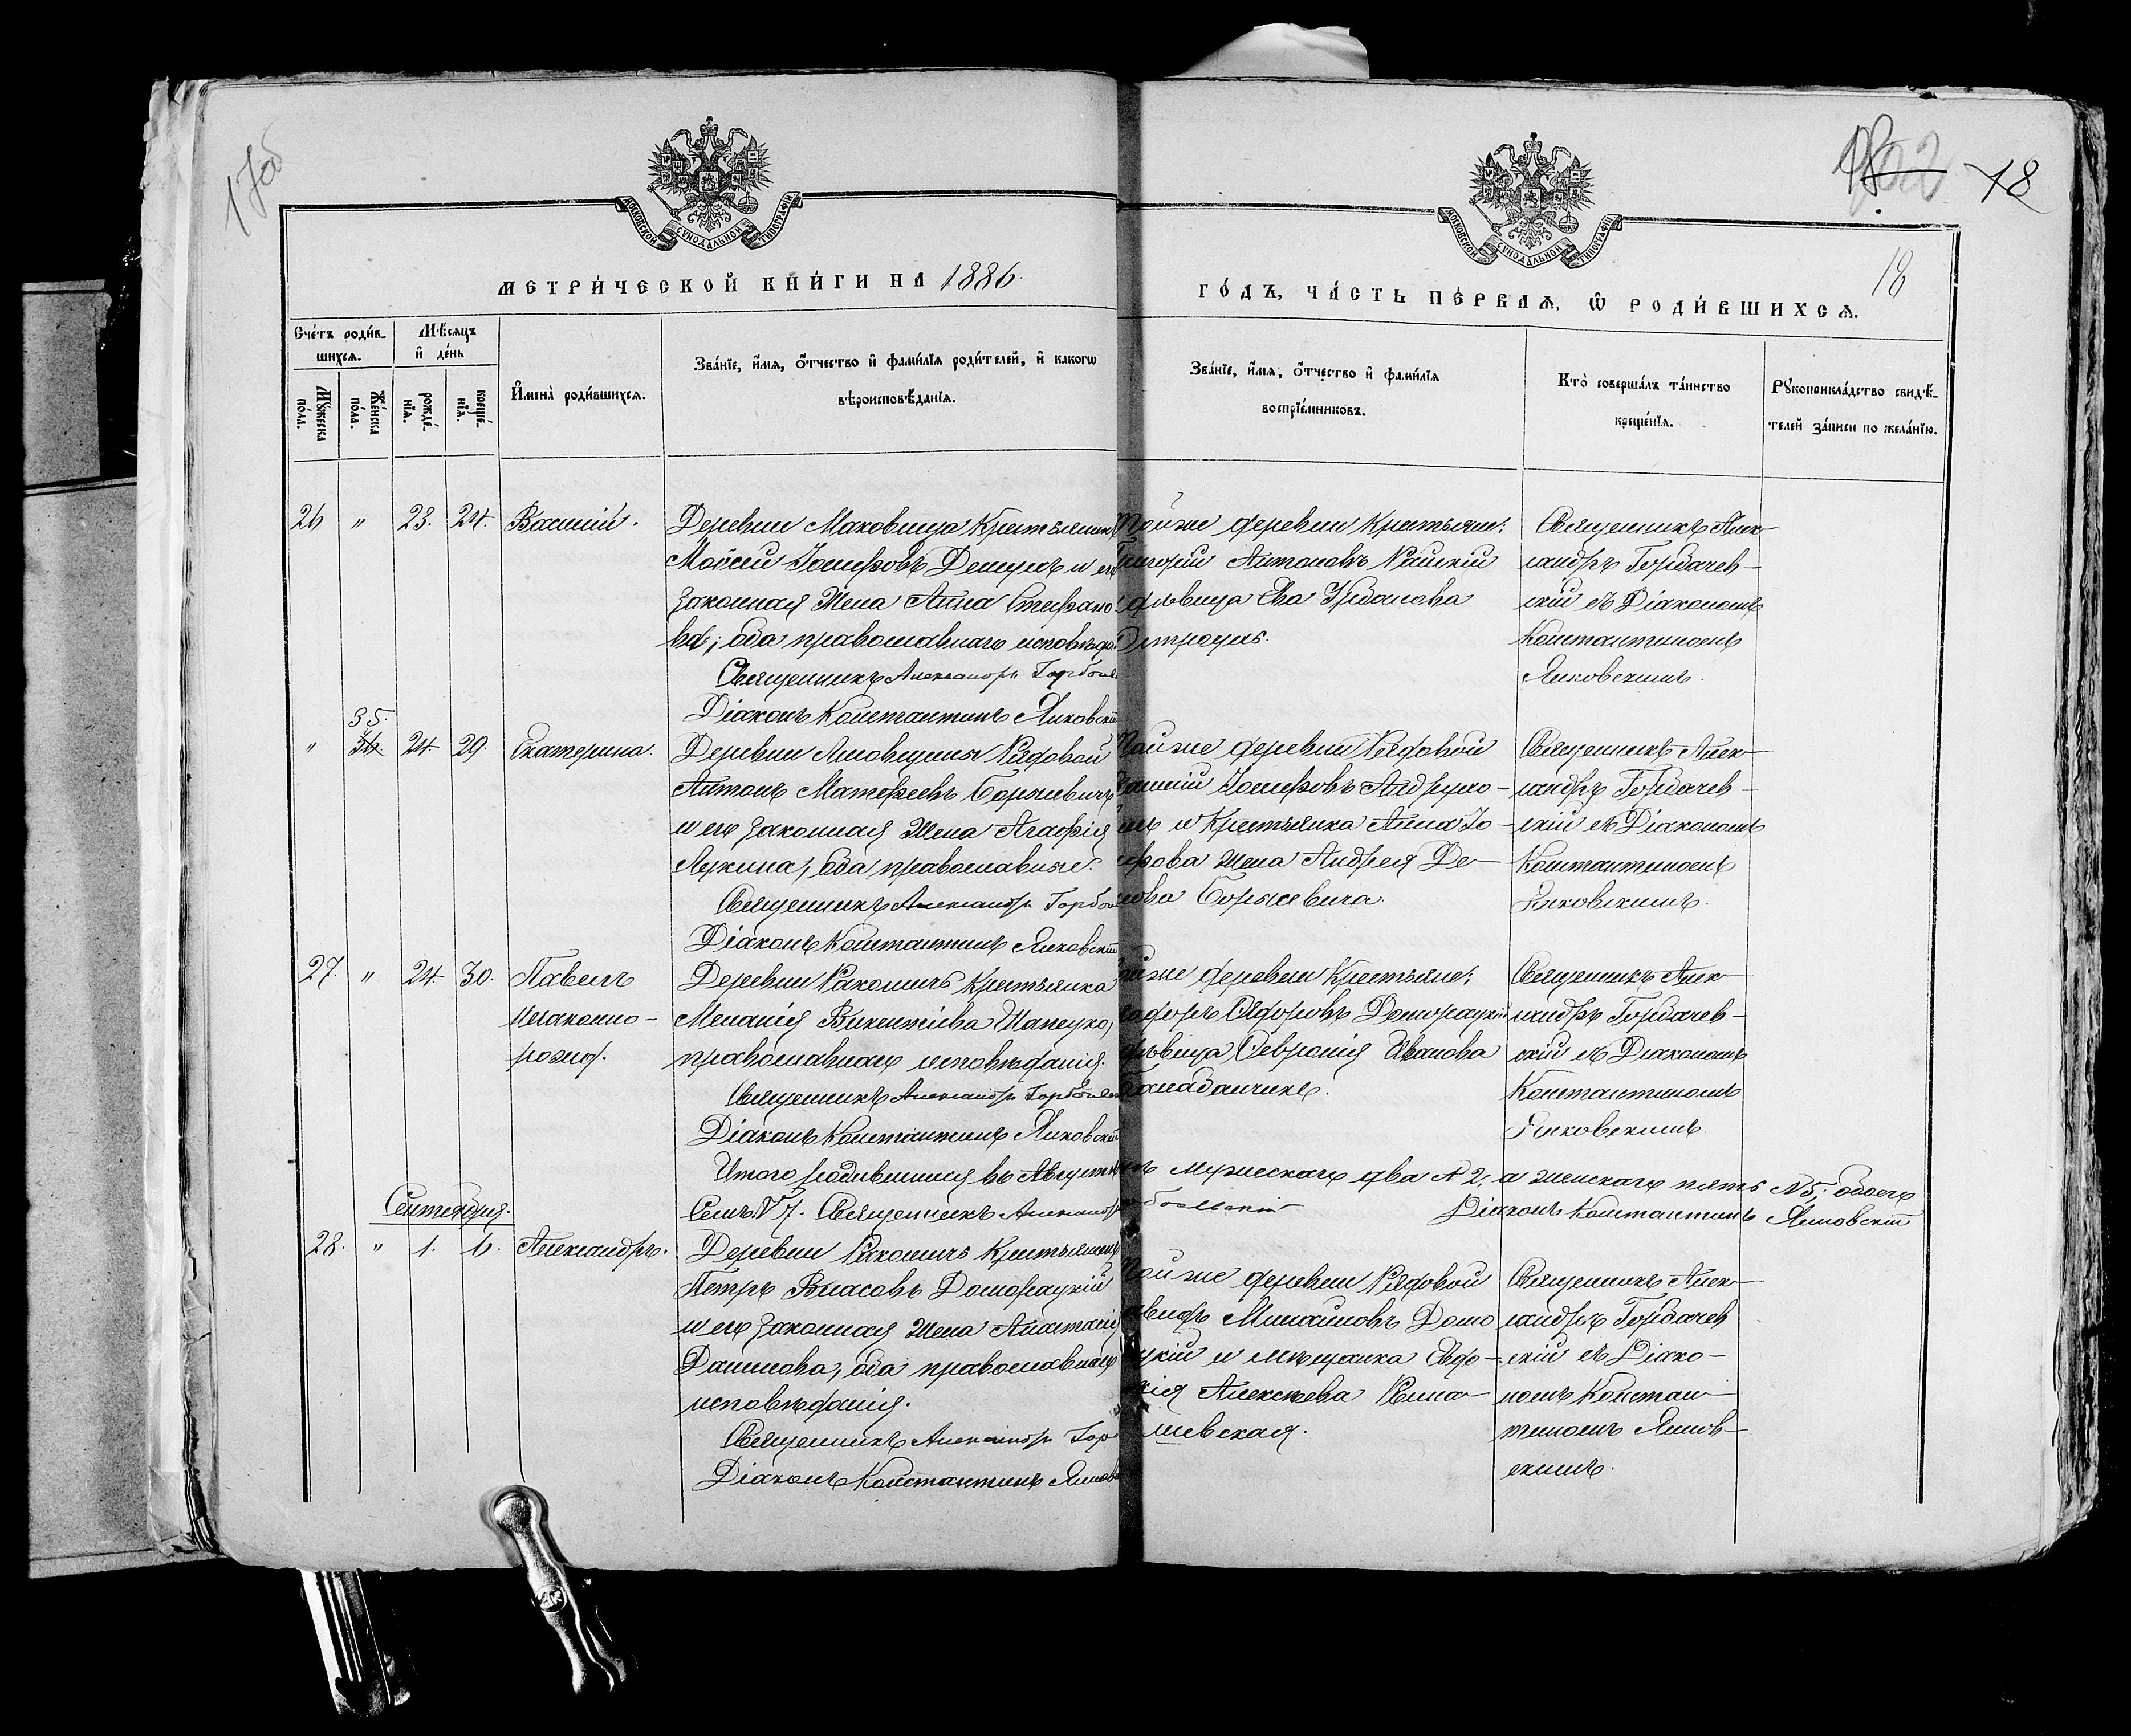 17об
18
18
МОСКОВСКОЙ СУНОДАЛЬНОЙ ТИПОГРАФІИ
МОСКОВСКОЙ СУНОДАЛЬНОЙ ТИПОГРАФІИ
МЕТРИ́ЧЕСКОЙ КНИ́ГИ НА 1886
ГО́ДЪ, ЧА́СТЬ ПЕ́РВАѦ, Ѡ РОДИ́ВШИХСѦ.
Сче́тъ роди́в-
шихсѧ.
Мѣ́сяцъ
и҆ де́нь
Мꙋ́жеска по́ла.
Же́нска по́ла.
рожде́-нїѧ.
креще́-нїѧ.
И҆мена̀ роди́вшихсѧ.
Зва́нїе, и҆́мѧ, ѻ҆́тчество и҆ фами́лїѧ роди́телей, и҆ како́гѡ
вѣроисповѣ́данїѧ.
Зва́нїе, и҆́мѧ, ѻ҆́тчество и҆ фами́лїѧ
воспрїе́мниковъ.
Кто̀ соверша́лъ та́инство
креще́нїѧ.
Рꙋкоприкла́дство свидѣ́-
телей за́писи по жела́нїю.
26 " 23. 24. Василій.
Деревни Маковища Крестьянинъ
Моисей Іосифовъ Демчукъ и его
законная жена Анна Стефано-
ва; оба православнаго исповѣда
Священникъ Александръ Горбач
Діаконъ Константинъ Янковскій
Той же деревни Крестьяне:
Григорій Антоновъ
дѣвица Ева Урбанова
Священникъ Алек-
сандръ Горбачев-
скій съ Діакономъ
Константиномъ
Янковскимъ.
" 35. 36. 24. 29. Екатерина.
Деревни Рядовой
Антонъ Матфеевъ Борисевичъ
и его законная жена Агафія
Лукина, оба православные.
Священникъ Александръ Горбач
Діаконъ Константинъ Янковскій
Той же деревни Рядовой
Іосифовъ Андруко-
и Крестьянка Анна Іо-
сифова жена Андрея Де-
Борисевича.
Священникъ Алек-
сандръ Горбачев-
скій съ Діакономъ
Константиномъ
Янковскимъ.
27. " 24. 30. Павелъ
незаконно-
рожд.
Деревни Ракошичъ Крестьянка
Меланія Викентіева Шапецко,
православнаго исповѣданія.
Священникъ Александръ Горбач
Діаконъ Константинъ Янковскій
той же деревни Крестьяне:
Доморацкій
дѣвица Февронія Иванова
Священникъ Алек-
сандръ Горбачев-
скій съ Діакономъ
Константиномъ
Янковскимъ.
Итого родившихся въ Августѣ
мужескаго два № 2, а женскаго пять № 5; обоего
Семь № 7. Священникъ Александръ
Діаконъ Константинъ Янковскій
Сентября.
28. " 1. 6. Александръ.
Деревни Ракошичъ Крестьянинъ
Петръ Власовъ Доморацкій
и его законная жена Анастасія
Данилова, оба православнаго
исповѣданія.
Священникъ Александръ Гор
Діаконъ Константинъ Янков
Той же деревни Рядовой
Давидъ Михайловъ Домо-
рацкій и мѣщанка Евдо-
кія Алексѣева
Священникъ Алек-
сандръ Горбачев
скій съ Діако-
номъ Констан-
тиномъ Янков-
скимъ.